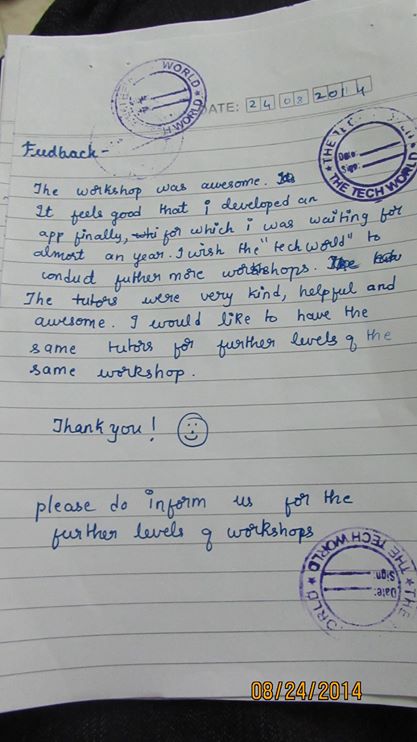 DATE: 24 08 2014
Feedback -
The workshop was awesome.
It feels good that i developed an
app finally, for which i was waiting for
almost an year. I wish the "tech world" to
conduct futher more workshops.
The tutors were very kind, helpful and
awesome. I would like to have the
same tutors for further levels of the
same workshop.
Thank you!
please do inform us for the
further levels of workshops
WORLD
TECH WORLD
THE TECH WORLD
Date:
Sign:
THE TECH WORLD
Date:
Sign:
08/24/2014